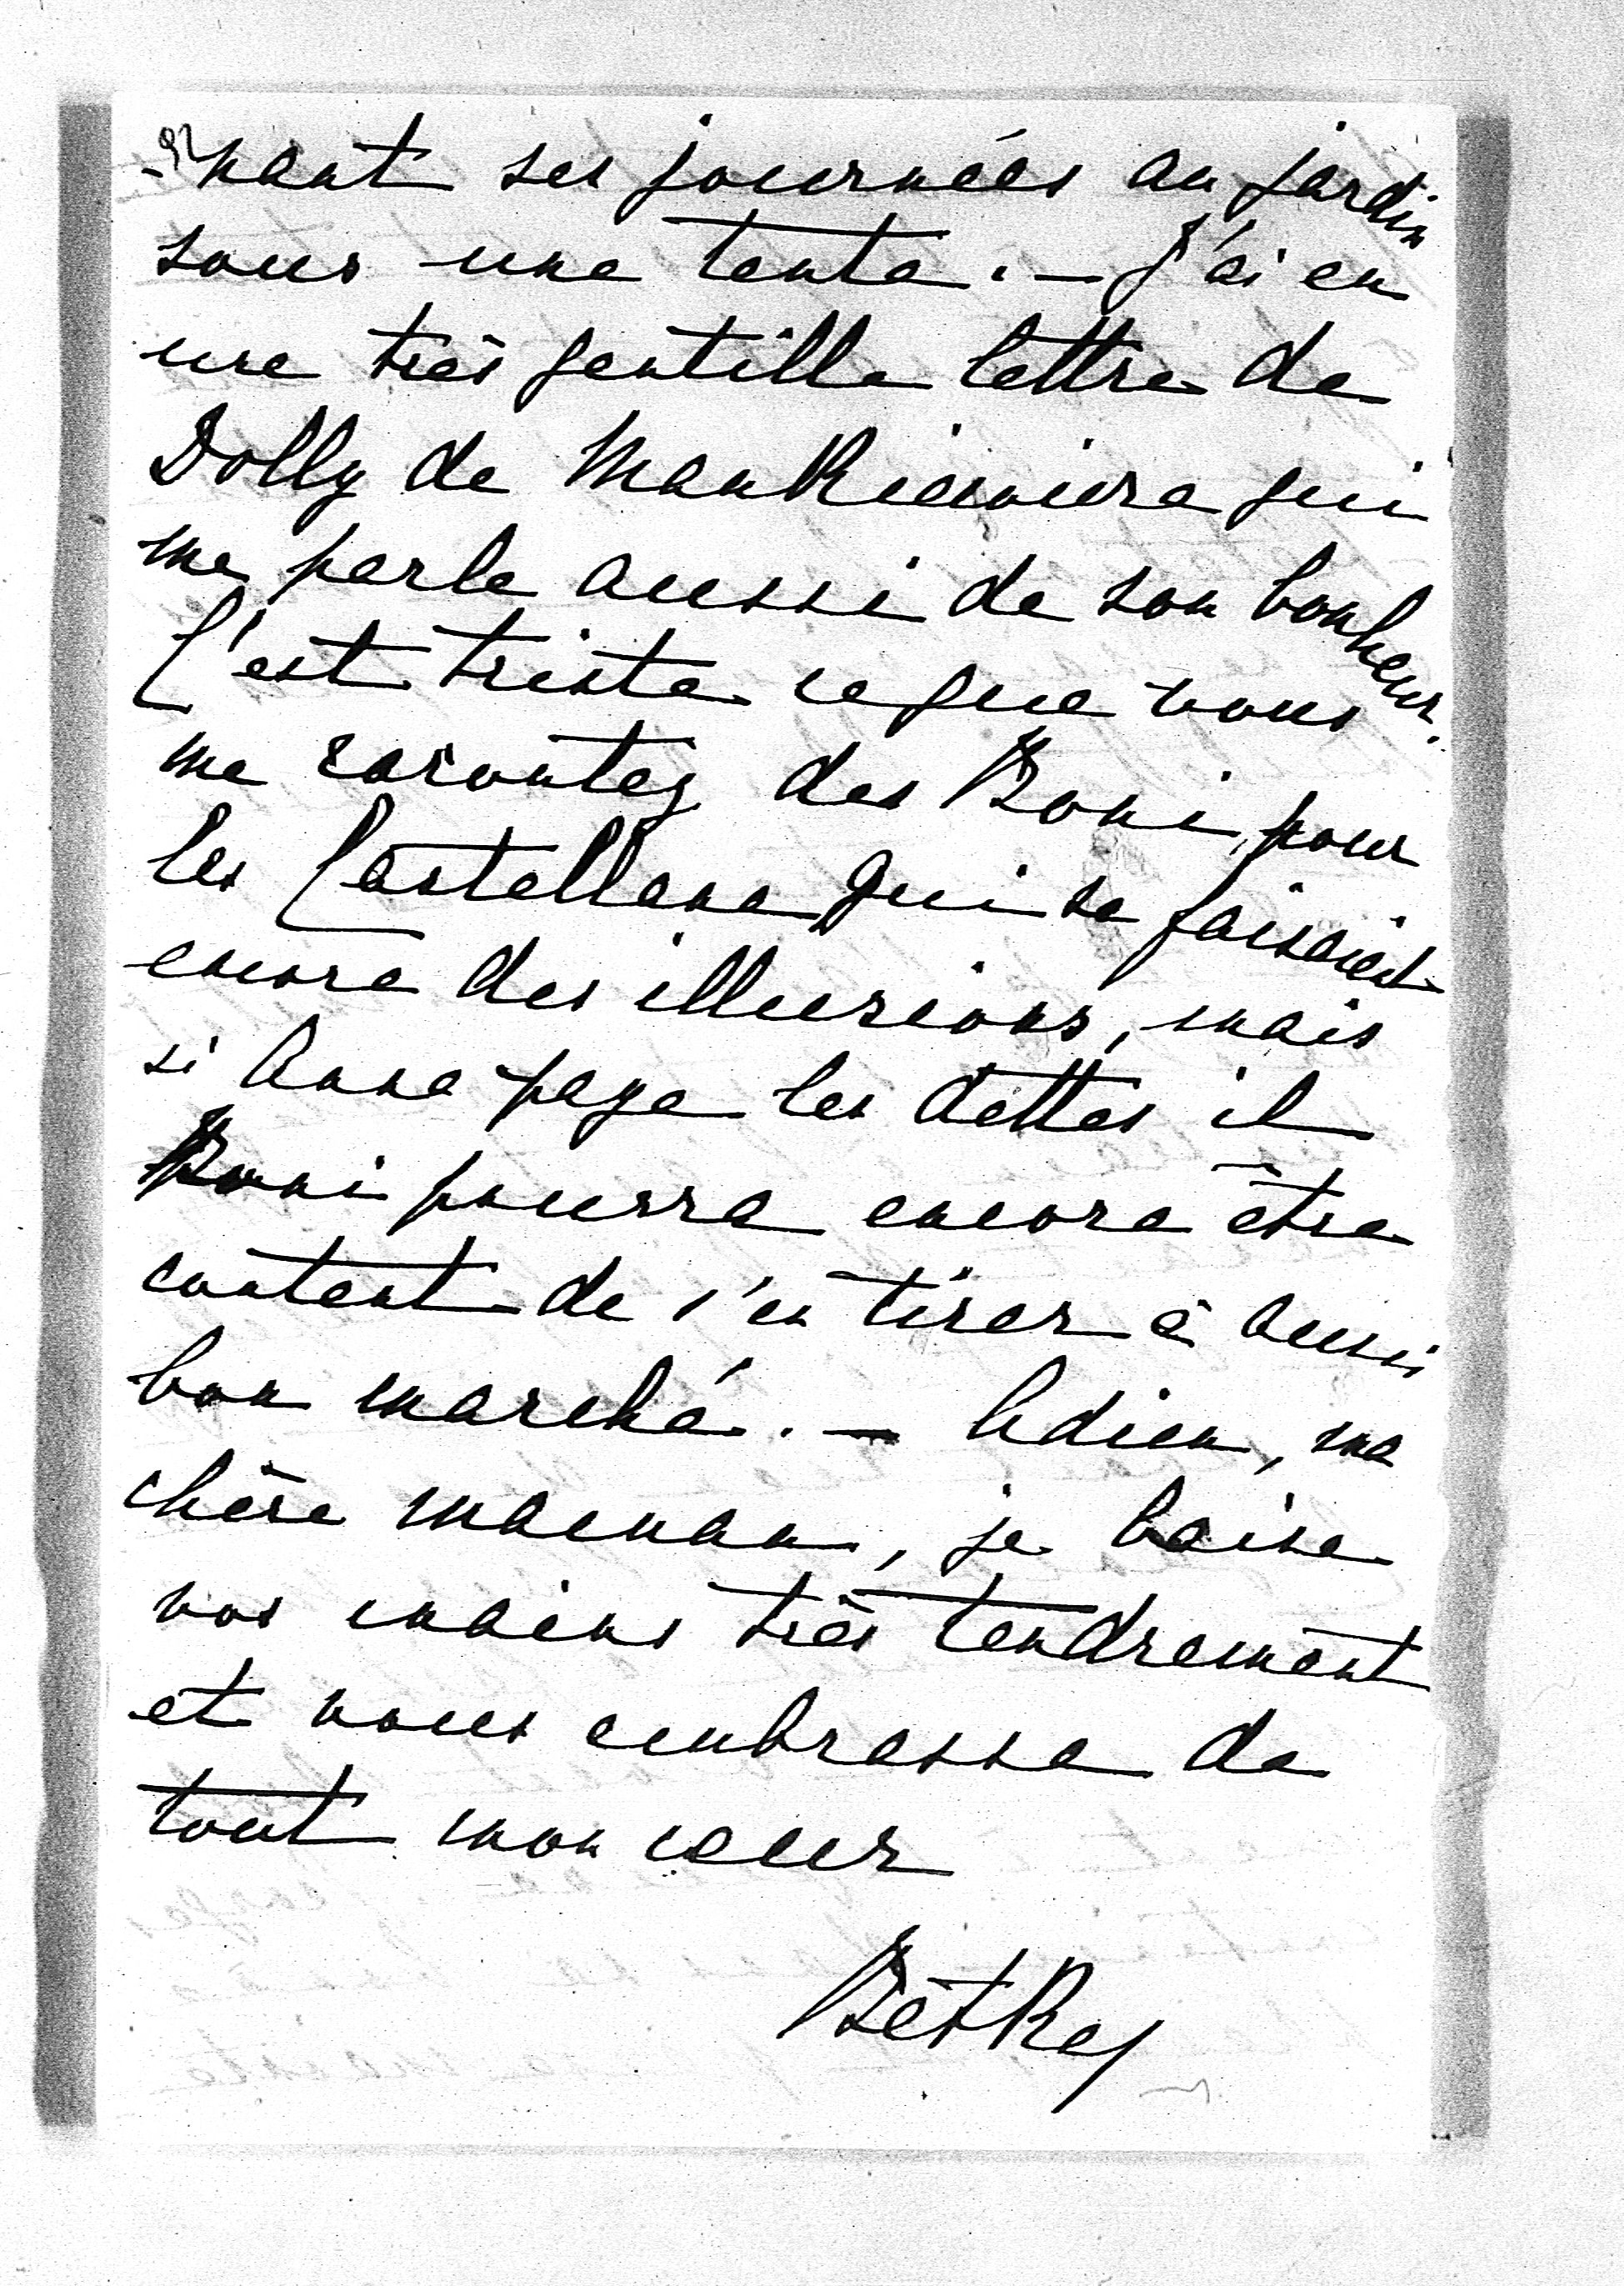 -nant ses journées au jardin
sous une tente. — J'ai eu
une très gentille lettre de
Dolly de qui
me parle aussi de son bonheur.
C'est triste ce que vous
me racontez des Boni, pour
les Castellane qui se faisaient
encore des illusions, mais
si Anna paye les dettes il
Boni pourra encore être
content de s'en tirer à aussi
bon marché. — Adieu, ma
chère maman, je baise
vos mains très tendrement
et vous embrasse de
tout mon cœur